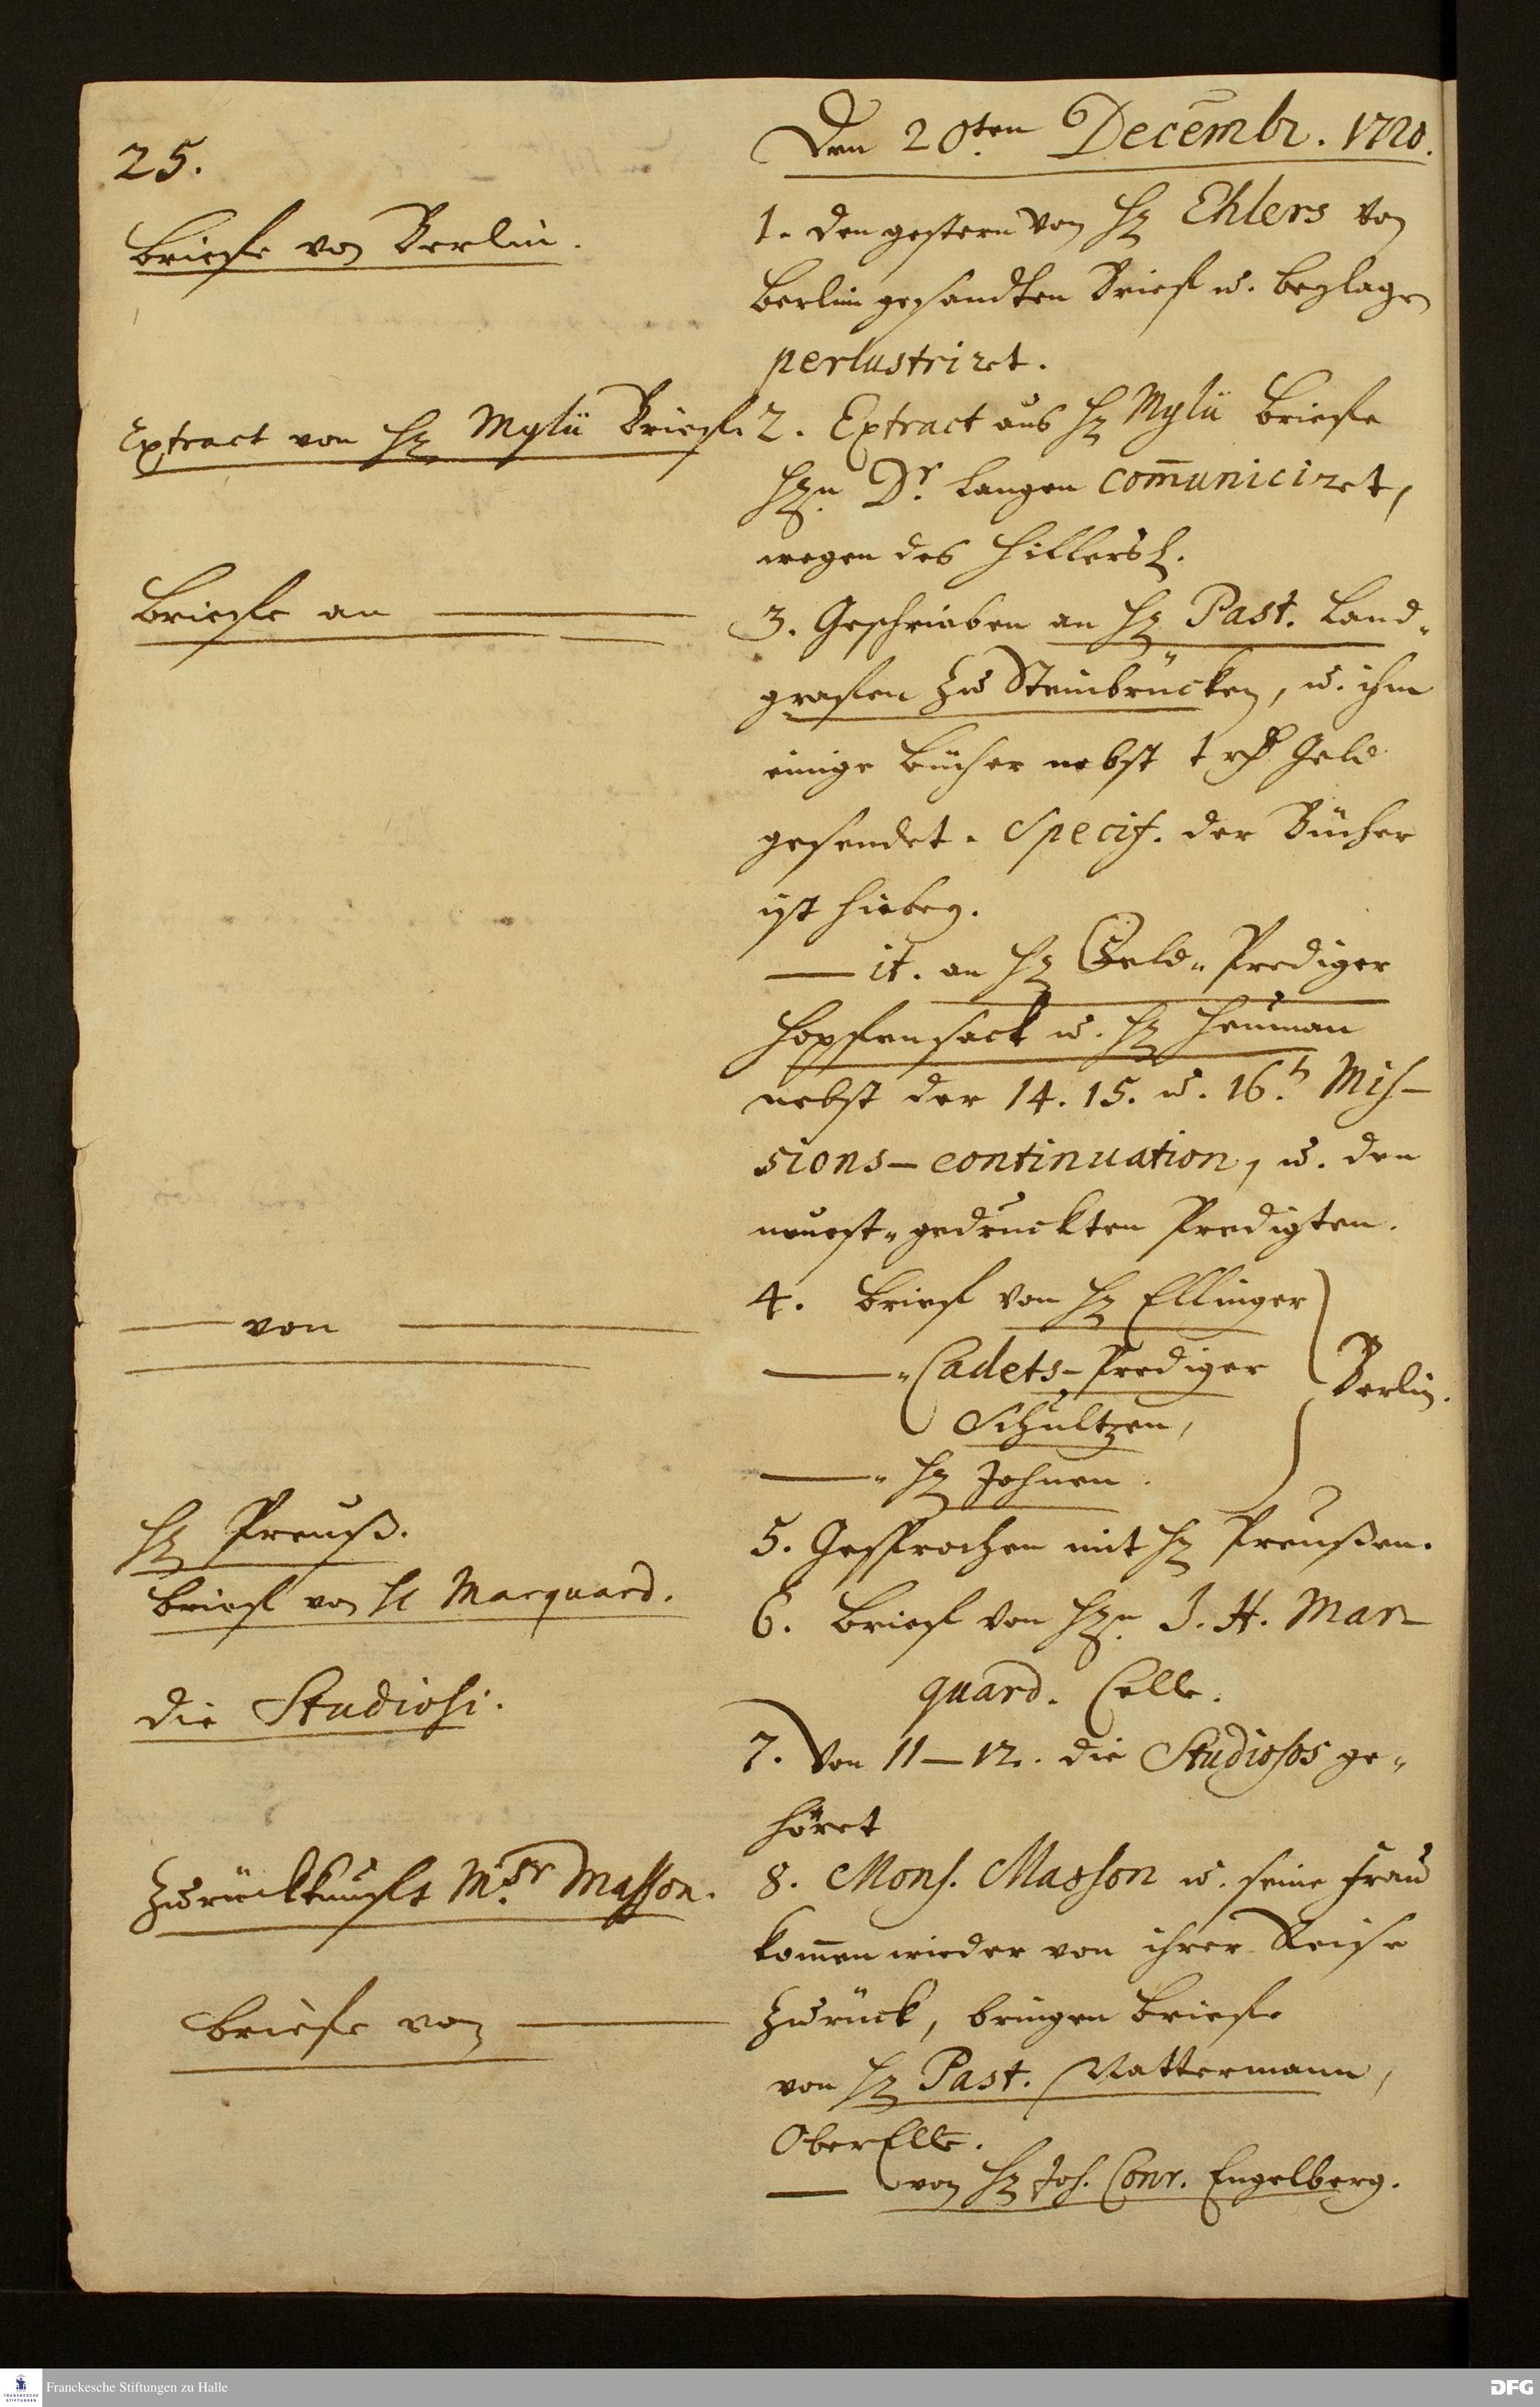 25.
Den 20ten Decembr. 1720.
Briefe von Berlin.
1. den gestern von H. Ehlers von
Berlin gesandten Brief u. beylagen
perlustriret.
Extract von H. Mylii Briefe
2. Extract aus H. Mylii Briefe
Hn. Dr. Langen com̄uniciret,
wegen des
Briefe an
3. Geschrieben an H. Past. Land„
grafen zu Steinbrücken, u. ihm
einige Bücher nebst 1 rth Geld
gesendet. Specif. der Bücher
ist hiebey.
it. an H. Feld„Prediger
Hopfensack u. H. Heuman
nebst der 14. 15. u. 16. Mis-
sions-continuation, u. den
neuest„gedruckten Predigten.
von
4. Brief von H. Ellinger
„Cadets-Prediger
Schultzen,
„ H. Johnen.
Berlin.
H. Preuß.
5. Gesprochen mit H. Preußen.
Brief von H Marquard.
6. Brief von Hn. J. H. Mar-
quard. Celle.
die Studiosi.
7. Von 11-12. die Studiosos ge„
höret
Zurückkunfft Msr. Masson.
8. Mons. Masson u. seine Frau
kom̄en wieder von ihrer Reise
zurück, bringen Briefe
Briefe von
von H. Past. Vattermann,
OberElle.
von H. Joh. Conr. Engelberg.
Franckesche Stiftungen zu Halle
FRANCKESCHE STIFTUNGEN
DFG